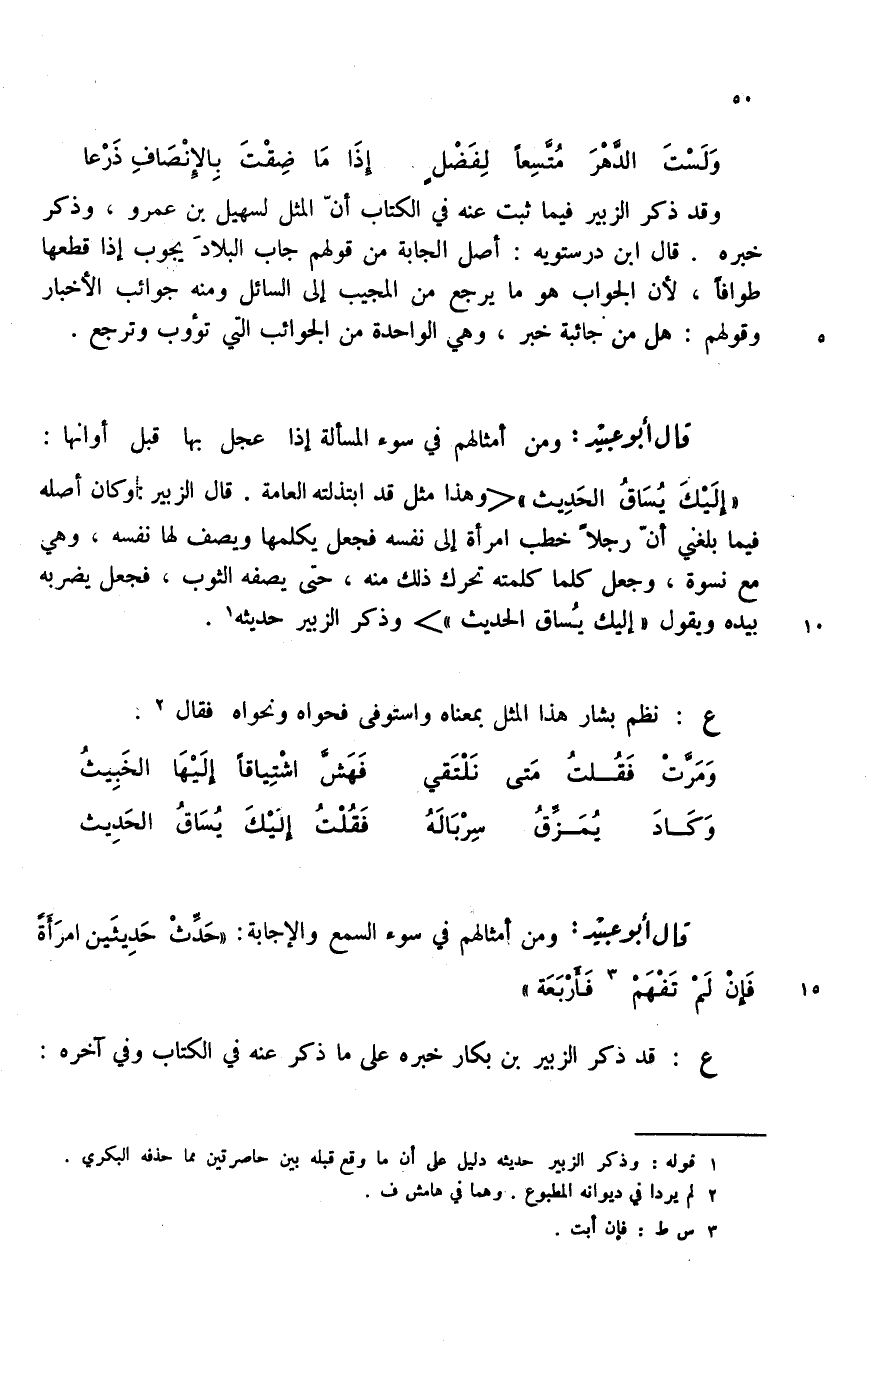 ٥٠
وَلَسْتَ الدَّهْرَ مُتَّسِعاً لِفَضْلٍ . إِذَا مَا ضِقْتَ بِالإِنْصَافِ ذَرْعا
وقد ذكر الزبير فيما ثبت عنه في الكتاب أنّ المثل لسهيل بن عمرو ، وذكر
خبره . قال ابن درستويه : أصل الجابة من قولهم جاب البلادَ يجوب إذا قطعها
طوافاً ، لأن الجواب هو ما يرجع من المجيب إلى السائل ومنه جوائب الأخبار
وقولهم : هل من جائبة خبر ، وهي الواحدة من الجوائب التي تؤوب وترجع . ٥
قال أبو عبيد : ومن أمثالهم في سوء المسألة إذا عجل بها قبل أوانها :
« إِلَيْكَ يُسَاقُ الحَدِيث » <وهذا مثل قد ابتذلته العامة . قال الزبير : وكان أصله
فيما بلغني أنّ رجلاً خطب امرأة إلى نفسه فجعل يكلمها ويصف لها نفسه ، وهي
مع نسوة ، وجعل كلما كلمته تحرك ذلك منه ، حتى يصفه الثوب ، فجعل يضربه
بيده ويقول « إليك يُساق الحديث »> وذكر الزبير حديثه١ . ١٠
ع : نظم بشار هذا المثل بمعناه واستوفى فحواه ونحواه فقال ٢ :
وَمَرَّتْ فَقُــلتُ مَتى نَلْتَقي فَهَشَّ اشْتِياقاً إِلَيْهَا الخَبِيثُ
وَكَــادَ يُمَــزِّقُ سِرْبَالَهُ فَقُلْتُ إِلَيْكَ يُسَاقُ الحَدِيث
قال أبو عبيد : ومن أمثالهم في سوء السمع والإجابة : «حَدِّثْ حَدِيثَين امرَأَةً
فَإِنْ لَمْ تَفْهَمْ ٣ فَأَرْبَعَة » ١٥
ع : قد ذكر الزبير بن بكار خبره على ما ذكر عنه في الكتاب وفي آخره :
١ قوله : وذكر الزبير حديثه دليل على أن ما وقع قبله بين حاصرتين مما حذفه البكري .
٢ لم يردا في ديوانه المطبوع . وهما في هامش ف .
٣ س ط : فإن أبت .